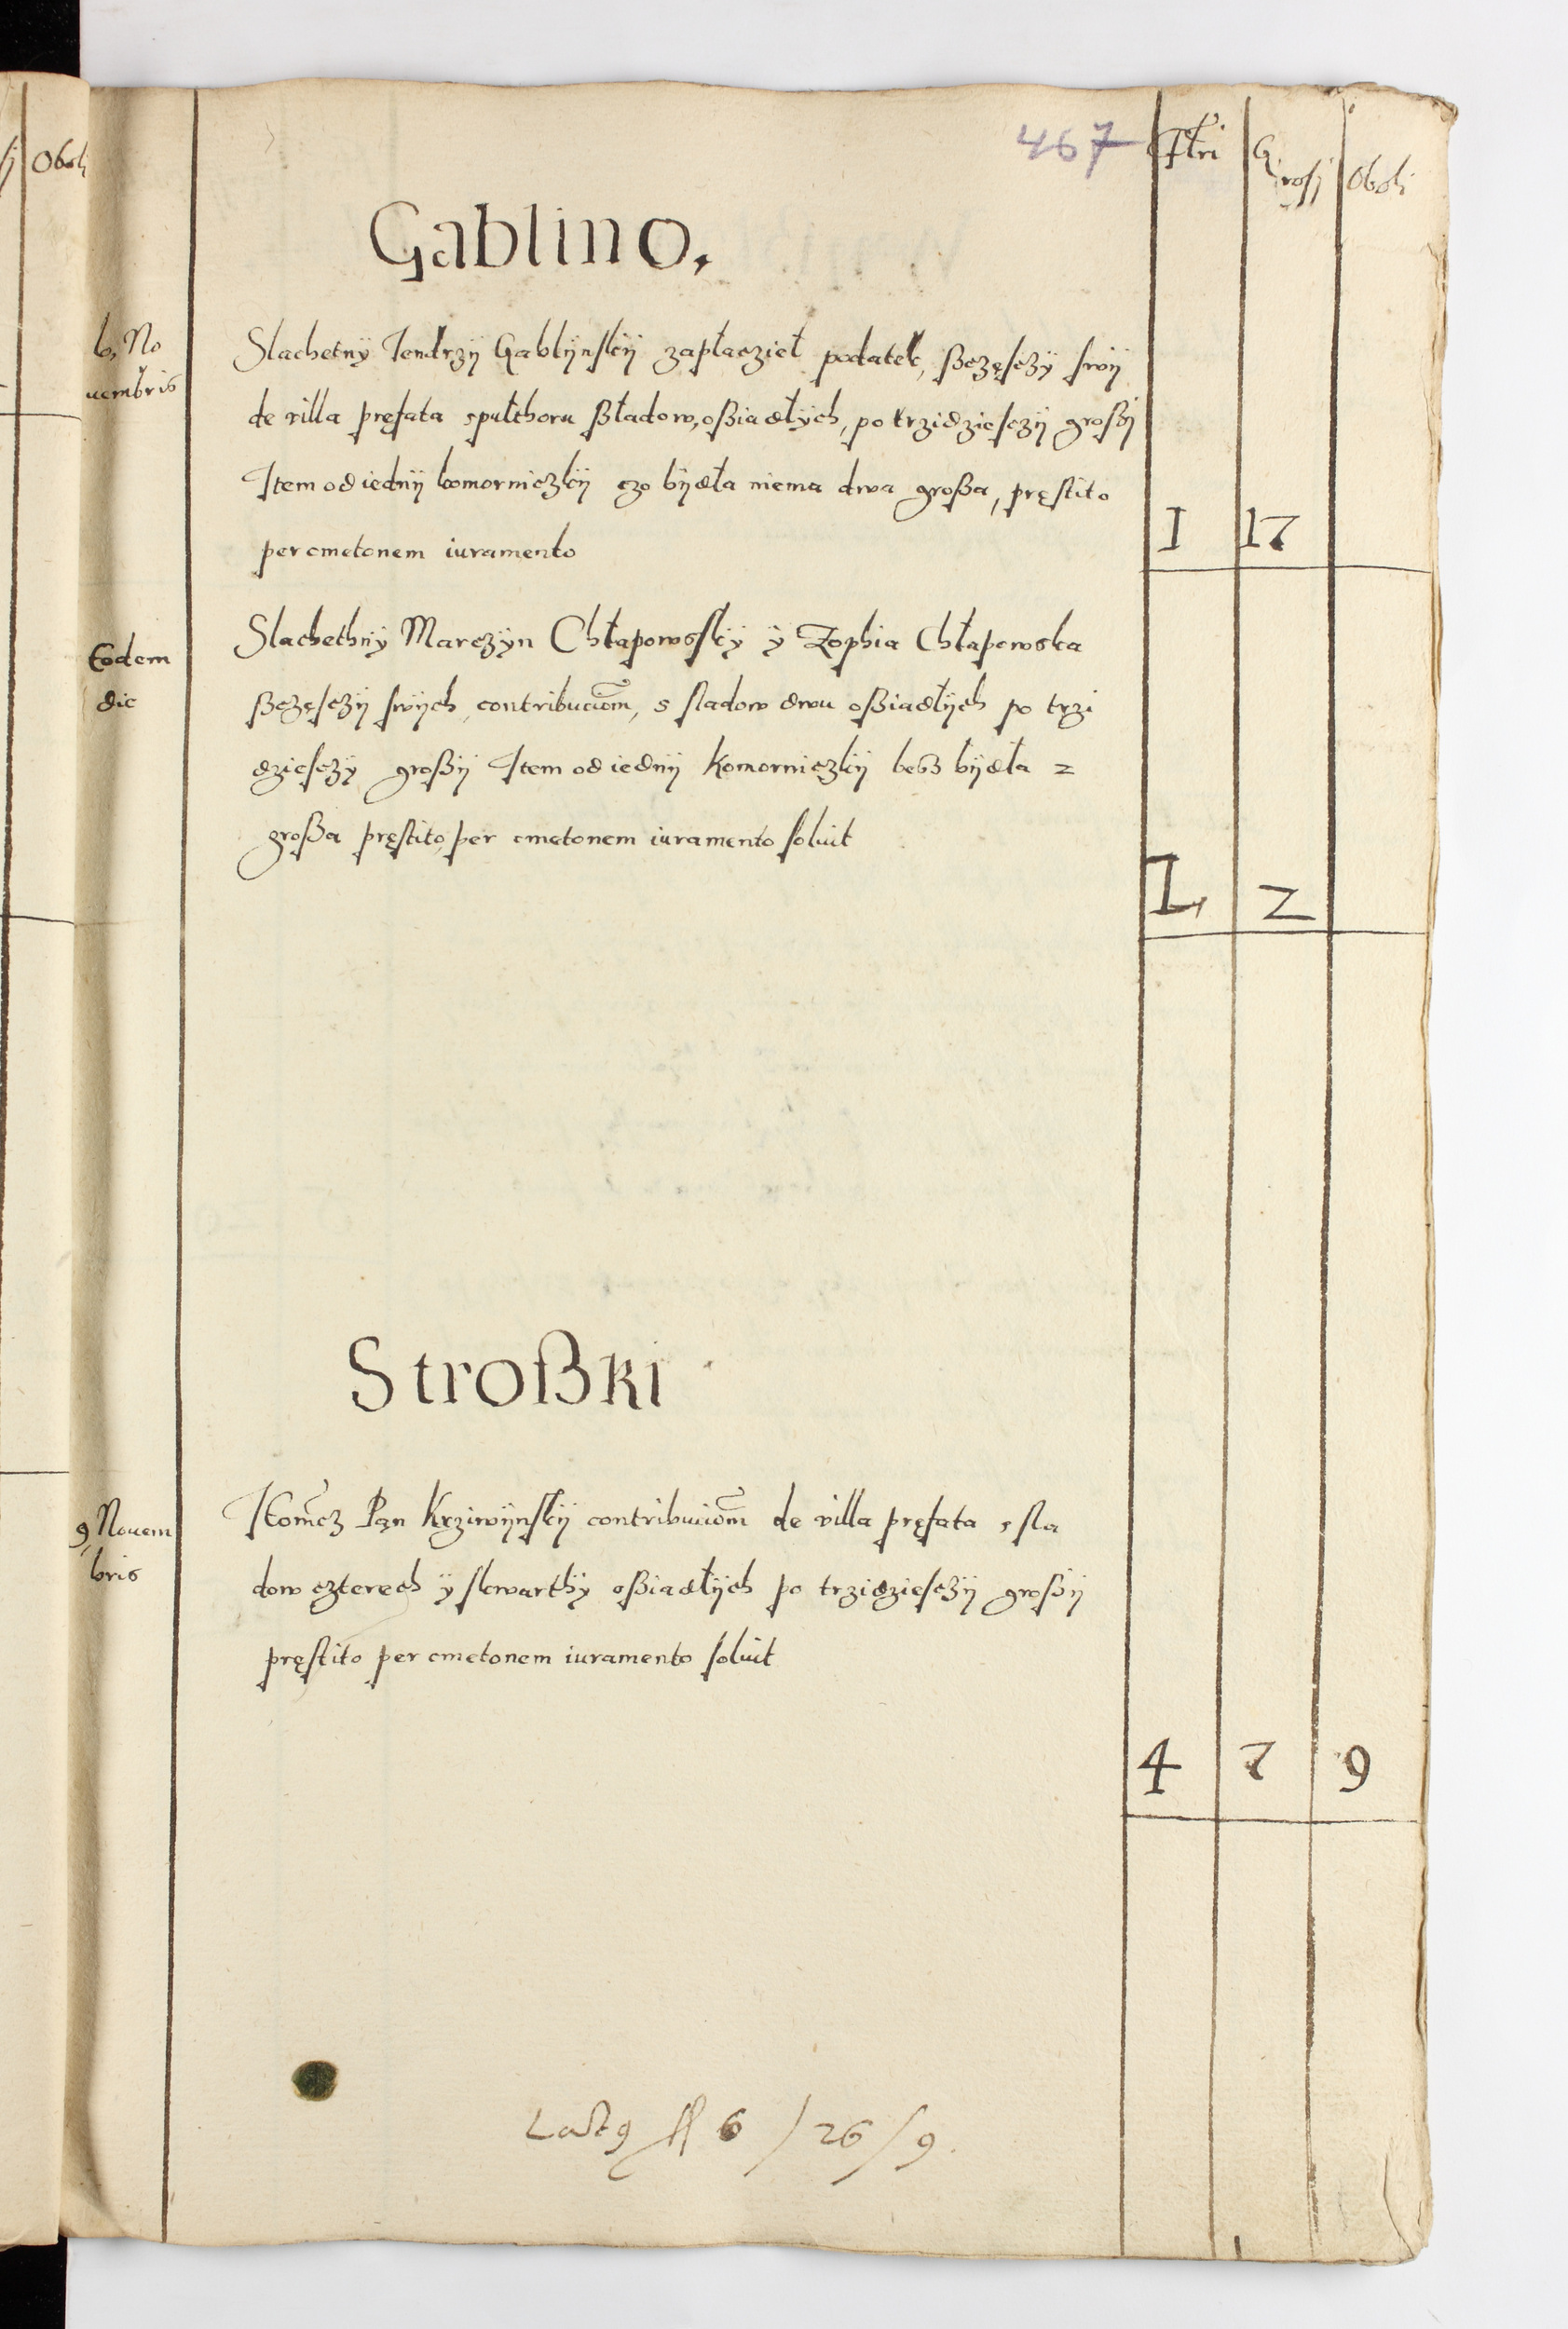 Oboli
467
Flri Grosj Oboli
Gablino,
6, No
uembris
Slachetnÿ Jendrzÿ Gablÿnskÿ zapłacziel podatek, ßczęsczÿ swÿ
de villa pręfata spułthoru ßladow, oßiadłÿch, po trzidziesczÿ großÿ
Item od iednÿ komorniczkÿ czo bÿdła niema dwa großa, pręstito
per cmetonem iuramento
I 17
Eodem
die
Slachethnÿ Marczÿn Chłapowsskÿ ÿ Zophia Chłapowska
ßczęsczÿ swÿch contribuciom, s sladow dwu oßiadłÿch po trzi
dziesczÿ großÿ Item od iednÿ Komorniczkÿ beß bÿdła 2
großa pręstito per cmetonem iuramento soluit
2
9 Nouem
bris
Stroßki
Pan Krziwÿnskÿ contribuciom de villa pręfata s sla
dow czterech ÿ skwarthÿ oßiadłÿch po trzidziesczÿ großÿ
pręstito per cmetonem iuramento soluit
4 7 9
6 / 26 / 9.